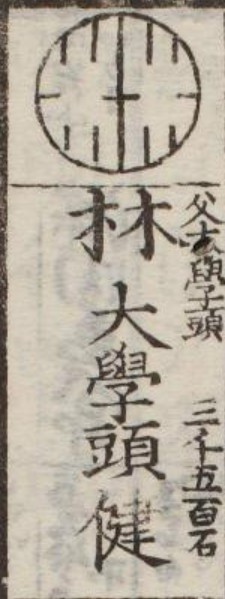 父大學頭 三千五百石
林 大學頭健